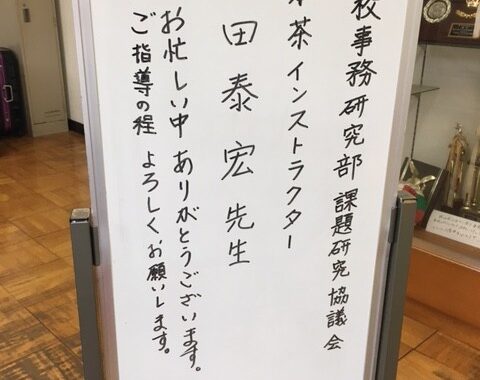 校事務研究部 課題研究協議会
茶インストラクター
田泰宏先生
お忙しい中 ありがとうございます。
ご指導の程 よろしくお願いします。